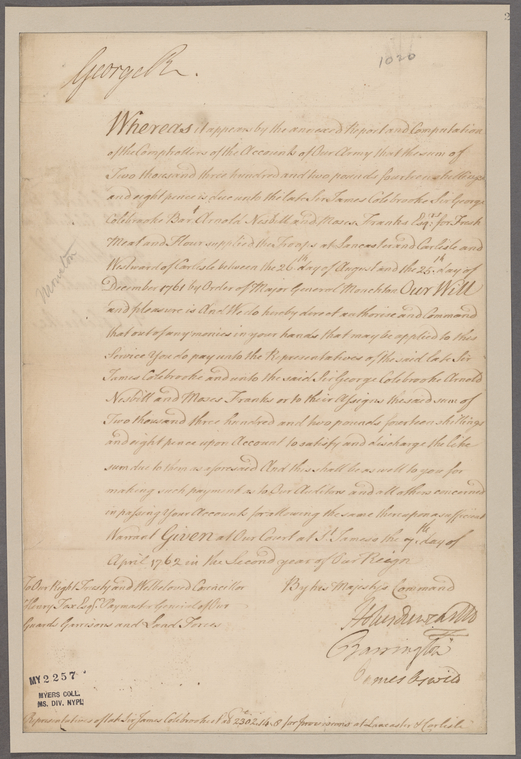 2
1020
George R.
Whereas it appears by the annexed Report and Computation
of the Comptrollers of the Accounts of Our Army that the sum of
Two thousand three hundred and two pounds fourteen shillings
and eight pence is due unto the late Sir James Colebrooke Sir George
Colebrooke Bart. Arnold Nesbitt and Moses Franks Esqrs. for Fresh
Meat and Flour supplied the Troops at Lancaster and Carlisle and
Westward of Carlisle between the 26th day of August and the 25th day of
December 1761 by Order of Major General Monckton Our Will
and pleasure is And We do hereby direct authorise and Command
that out of any monies in your hands that may be applied to this
Service You do pay unto the Representatives of the said late Sir
James Colebrooke and unto the said Sir George Colebrooke Arnold
Nesbitt and Moses Franks or to their Assigns the said sum of
Two thousand three hundred and two pounds fourteen shillings
and eight pence upon Account to satisfy and discharge the like
sum due to them as aforesaid And this shall be as well to you for
making such payment as to Our Auditors and all others concerned
in passing your Accounts for allowing the same thereupon a sufficient
Warrant Given at Our Court at St. James's the 7th day of
April 1762 in the Second year of Our Reign
Monckton
By his Majestys Command
To Our Right Trusty and Welbeloved Councillor
Henry Fox Esqr. Paymaster General of Our
Guards Garrisons and Land Forces
Barrington
James Oswald
MY 2257
MYERS COLL.
MS. DIV. NYPL
Representatives of late Sir James Colebrooke 2302.14.8 for provisions at Lancaster & Carlisle